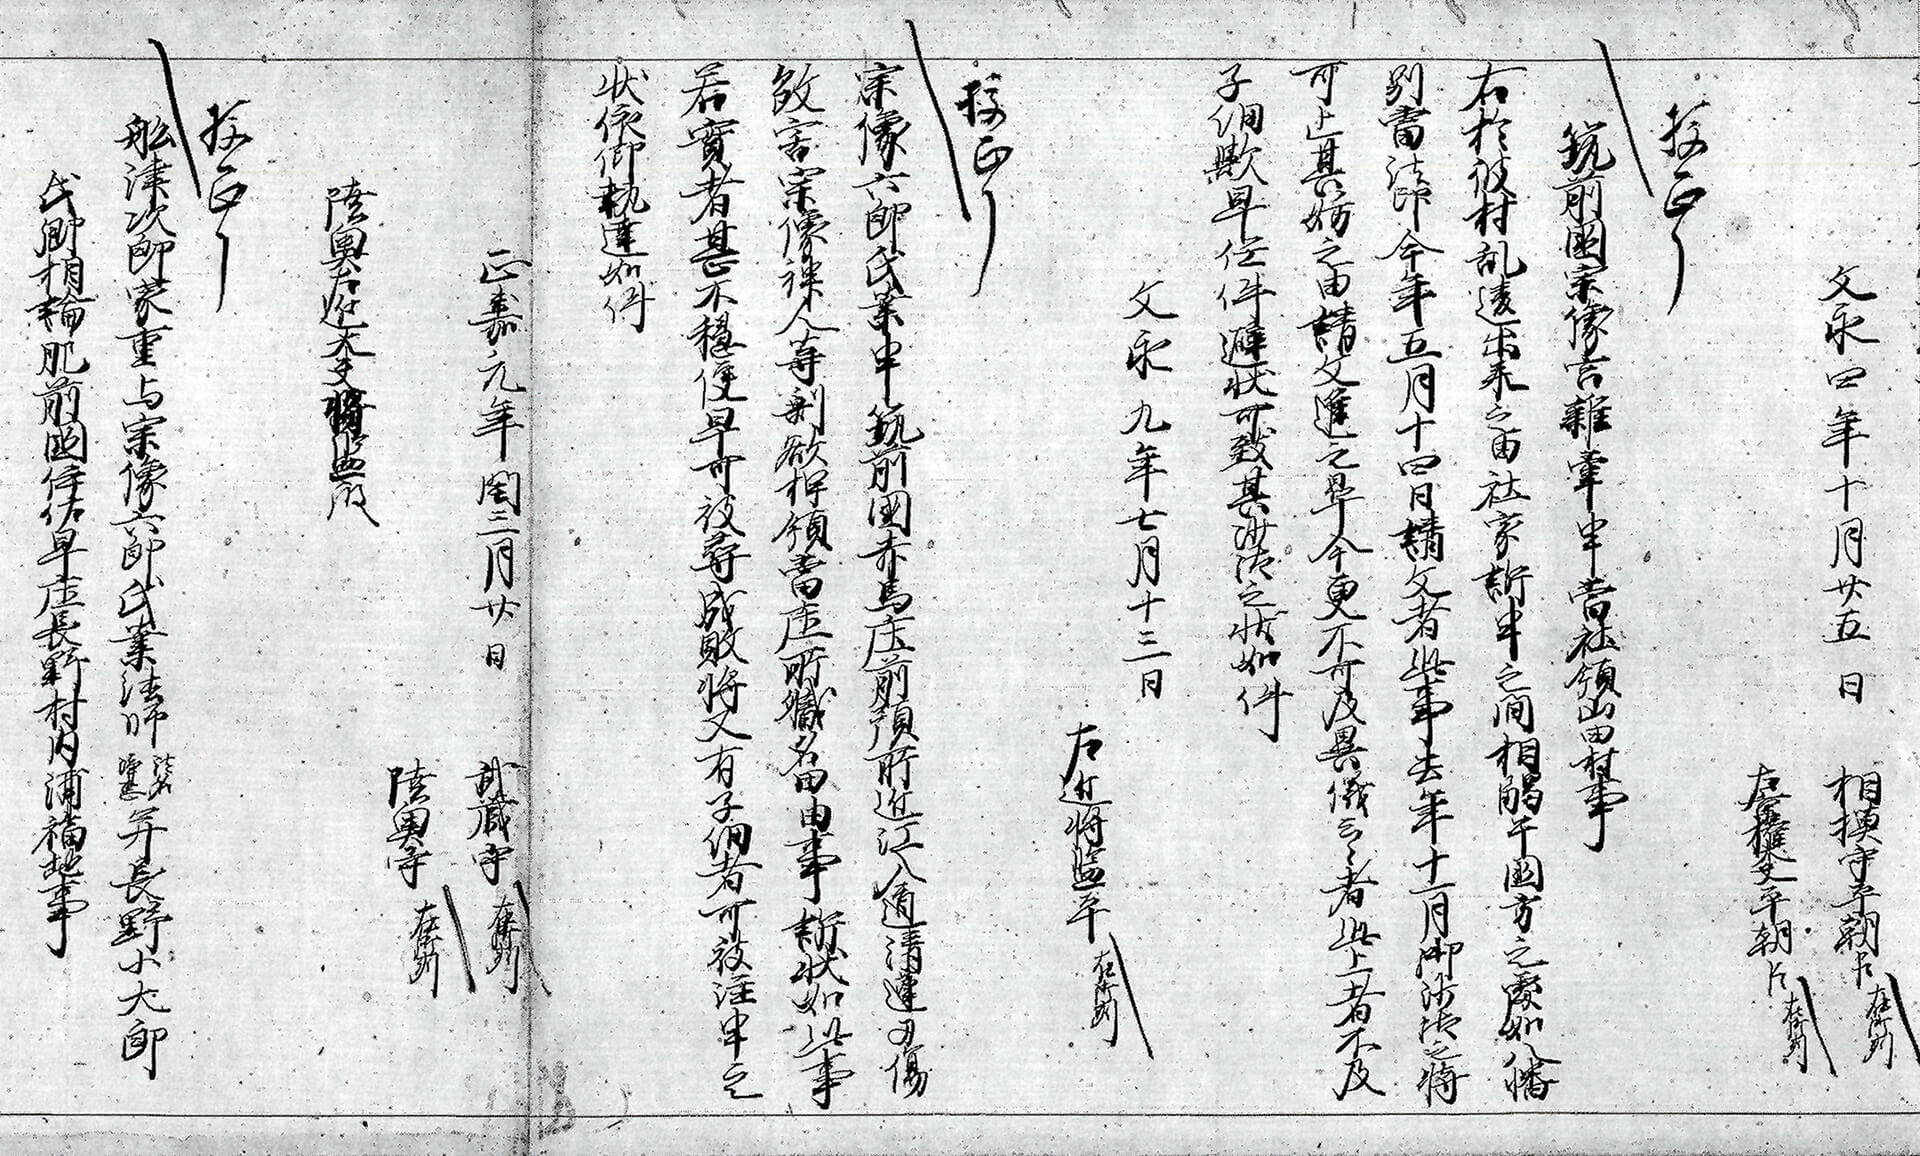 文永四年十月廿五日
相摸守平朝臣在御判
左京権大夫平朝臣在御判
校正了
筑前國宗像言雜掌申當社領山田村事
右於彼村乱遠出来之由社家訴申之間相觸于國方之處如八幡
別當法印今年五月十四日請文者此事去年十一月御沙汰之時
可止其妨之由請文進之畢今更不可及異儀云々者此上者不及
子細歟早任件避状可致其沙汰之状如件
文永九年七月十三日
左近将監平在御判
校正了
宗像六郎氏業申筑前國赤馬庄前預所近江入道清蓮刃傷
敓害宗像祙人等剰欲押領當庄所職名田由事訴状如此事
若實者甚不穏便早可被尋成敗将又有子細者可被注申之
状依仰執達如件
正嘉元年閏三月廿日
武蔵守在御判
陸奥守在御判
陸奥左近大夫将監殿
校正了
舩津次郎家重与宗像六郎氏業法師法名并長野小大郎
氏郷相論肥前國伊佐早庄長野村内浦福地事